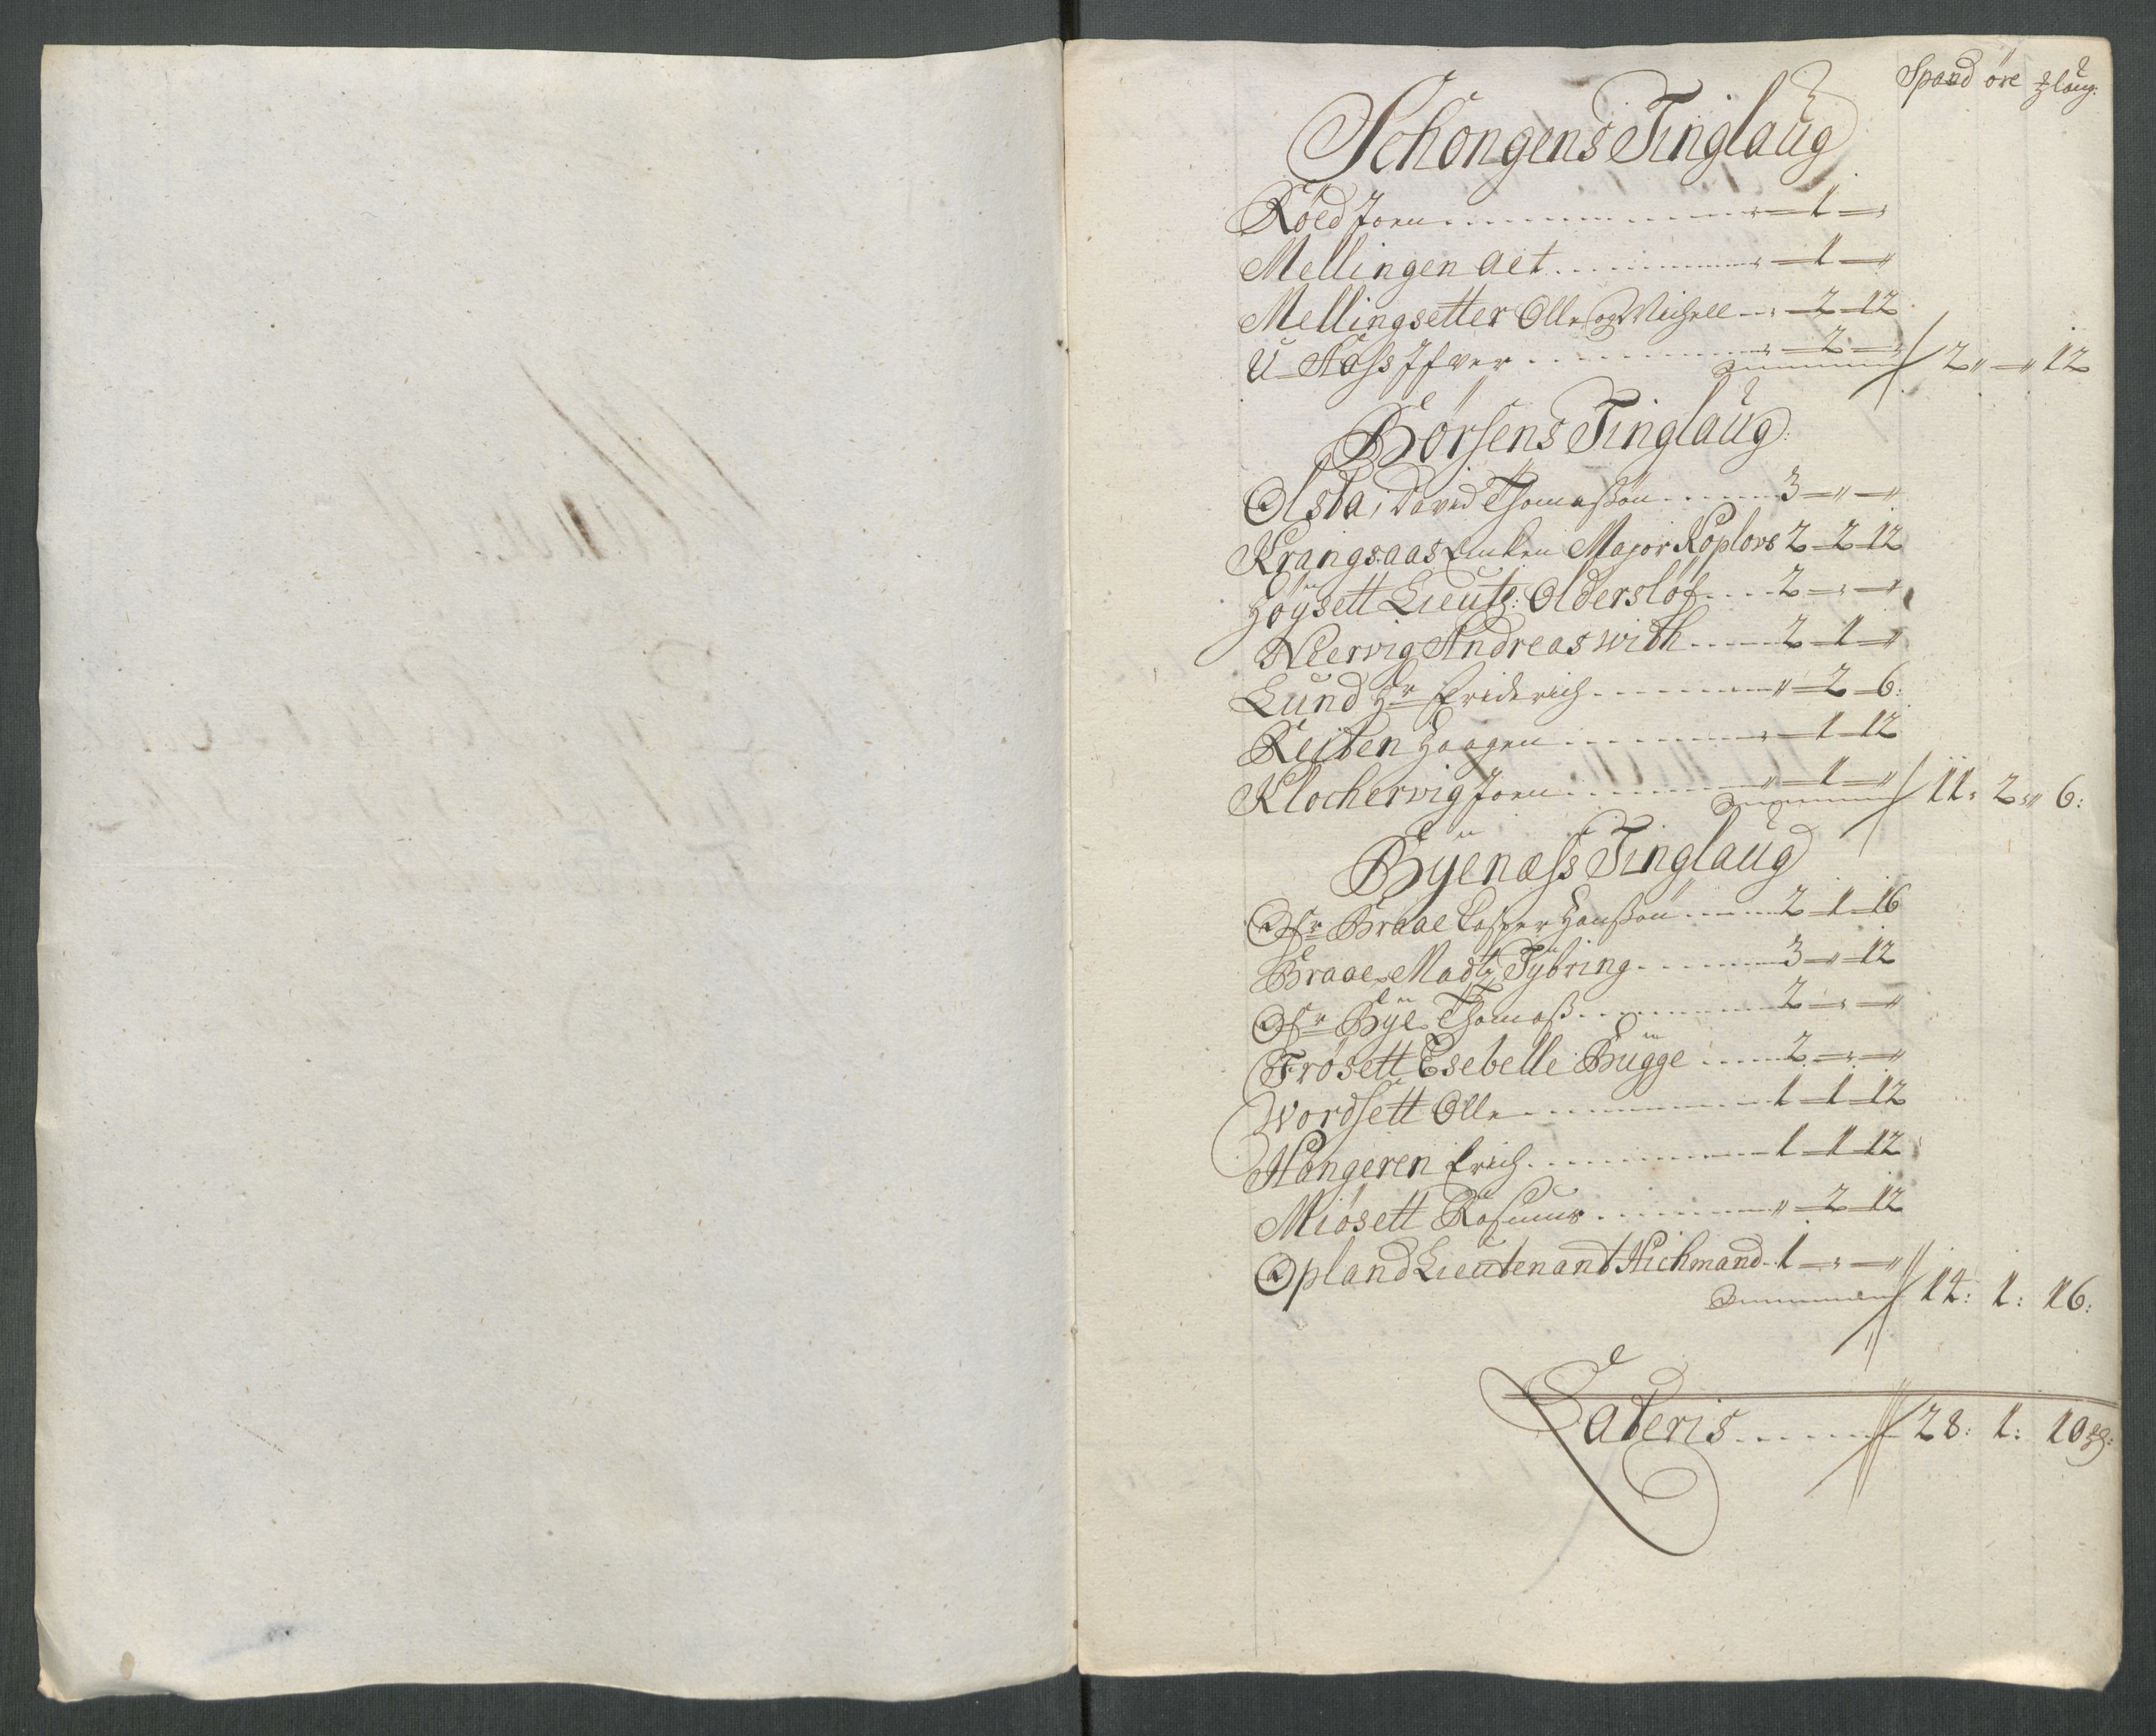 Spand öre laug:
Schongens Tinglaug
Röed Joen " 1 "
Mellingen Aet " 1 "
Mellingsetter Olle og Michell " 2 12
U Næss Ifver " 2 "
Summa 2 " " 12
Börsens Tinglaug:
Olsta, David Thomassön 3 " "
Krangsaas Enken Major Koplovs 2 2 12
Höysett Lieutn: Olderslöf 2 " "
Nervig Andreas with 2 1 "
Lund Hr Friderich " 2 6:
Reiten Haagen " 1 12
Klochervig Joen " 1 "
Summa 11: 2 " 6:
Byenæss Tinglaug
Ofr Braae Casper Hanssön 2 1 16
Braae Madtz Tybring 3 " 12
Ofr Bye Thomass 2 " "
Frösett Esebelle Bugge 2 " "
Wordsett Olle 1 1 12
Hangeren Erich 1 1 12
Miösett Rasmus " 2 12
Opland Lieutenant Hichmand 1 " "
Summa 14: 1: 16:
Lateris 28: 1: 10